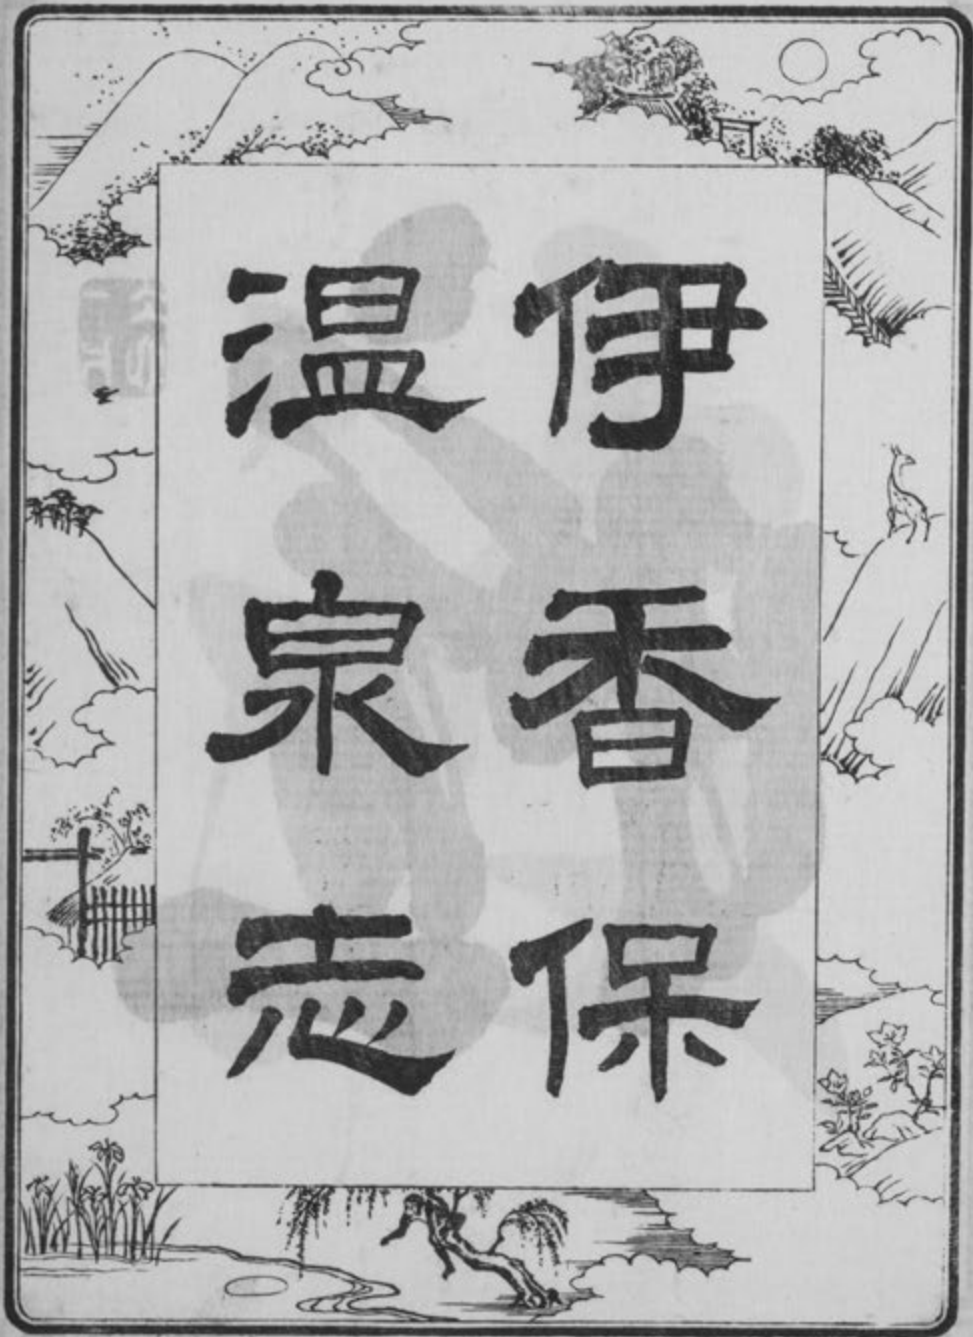 伊香保
温泉志